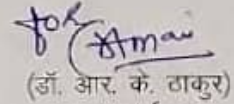 for
(डॉ. आर. के. ठाकुर)